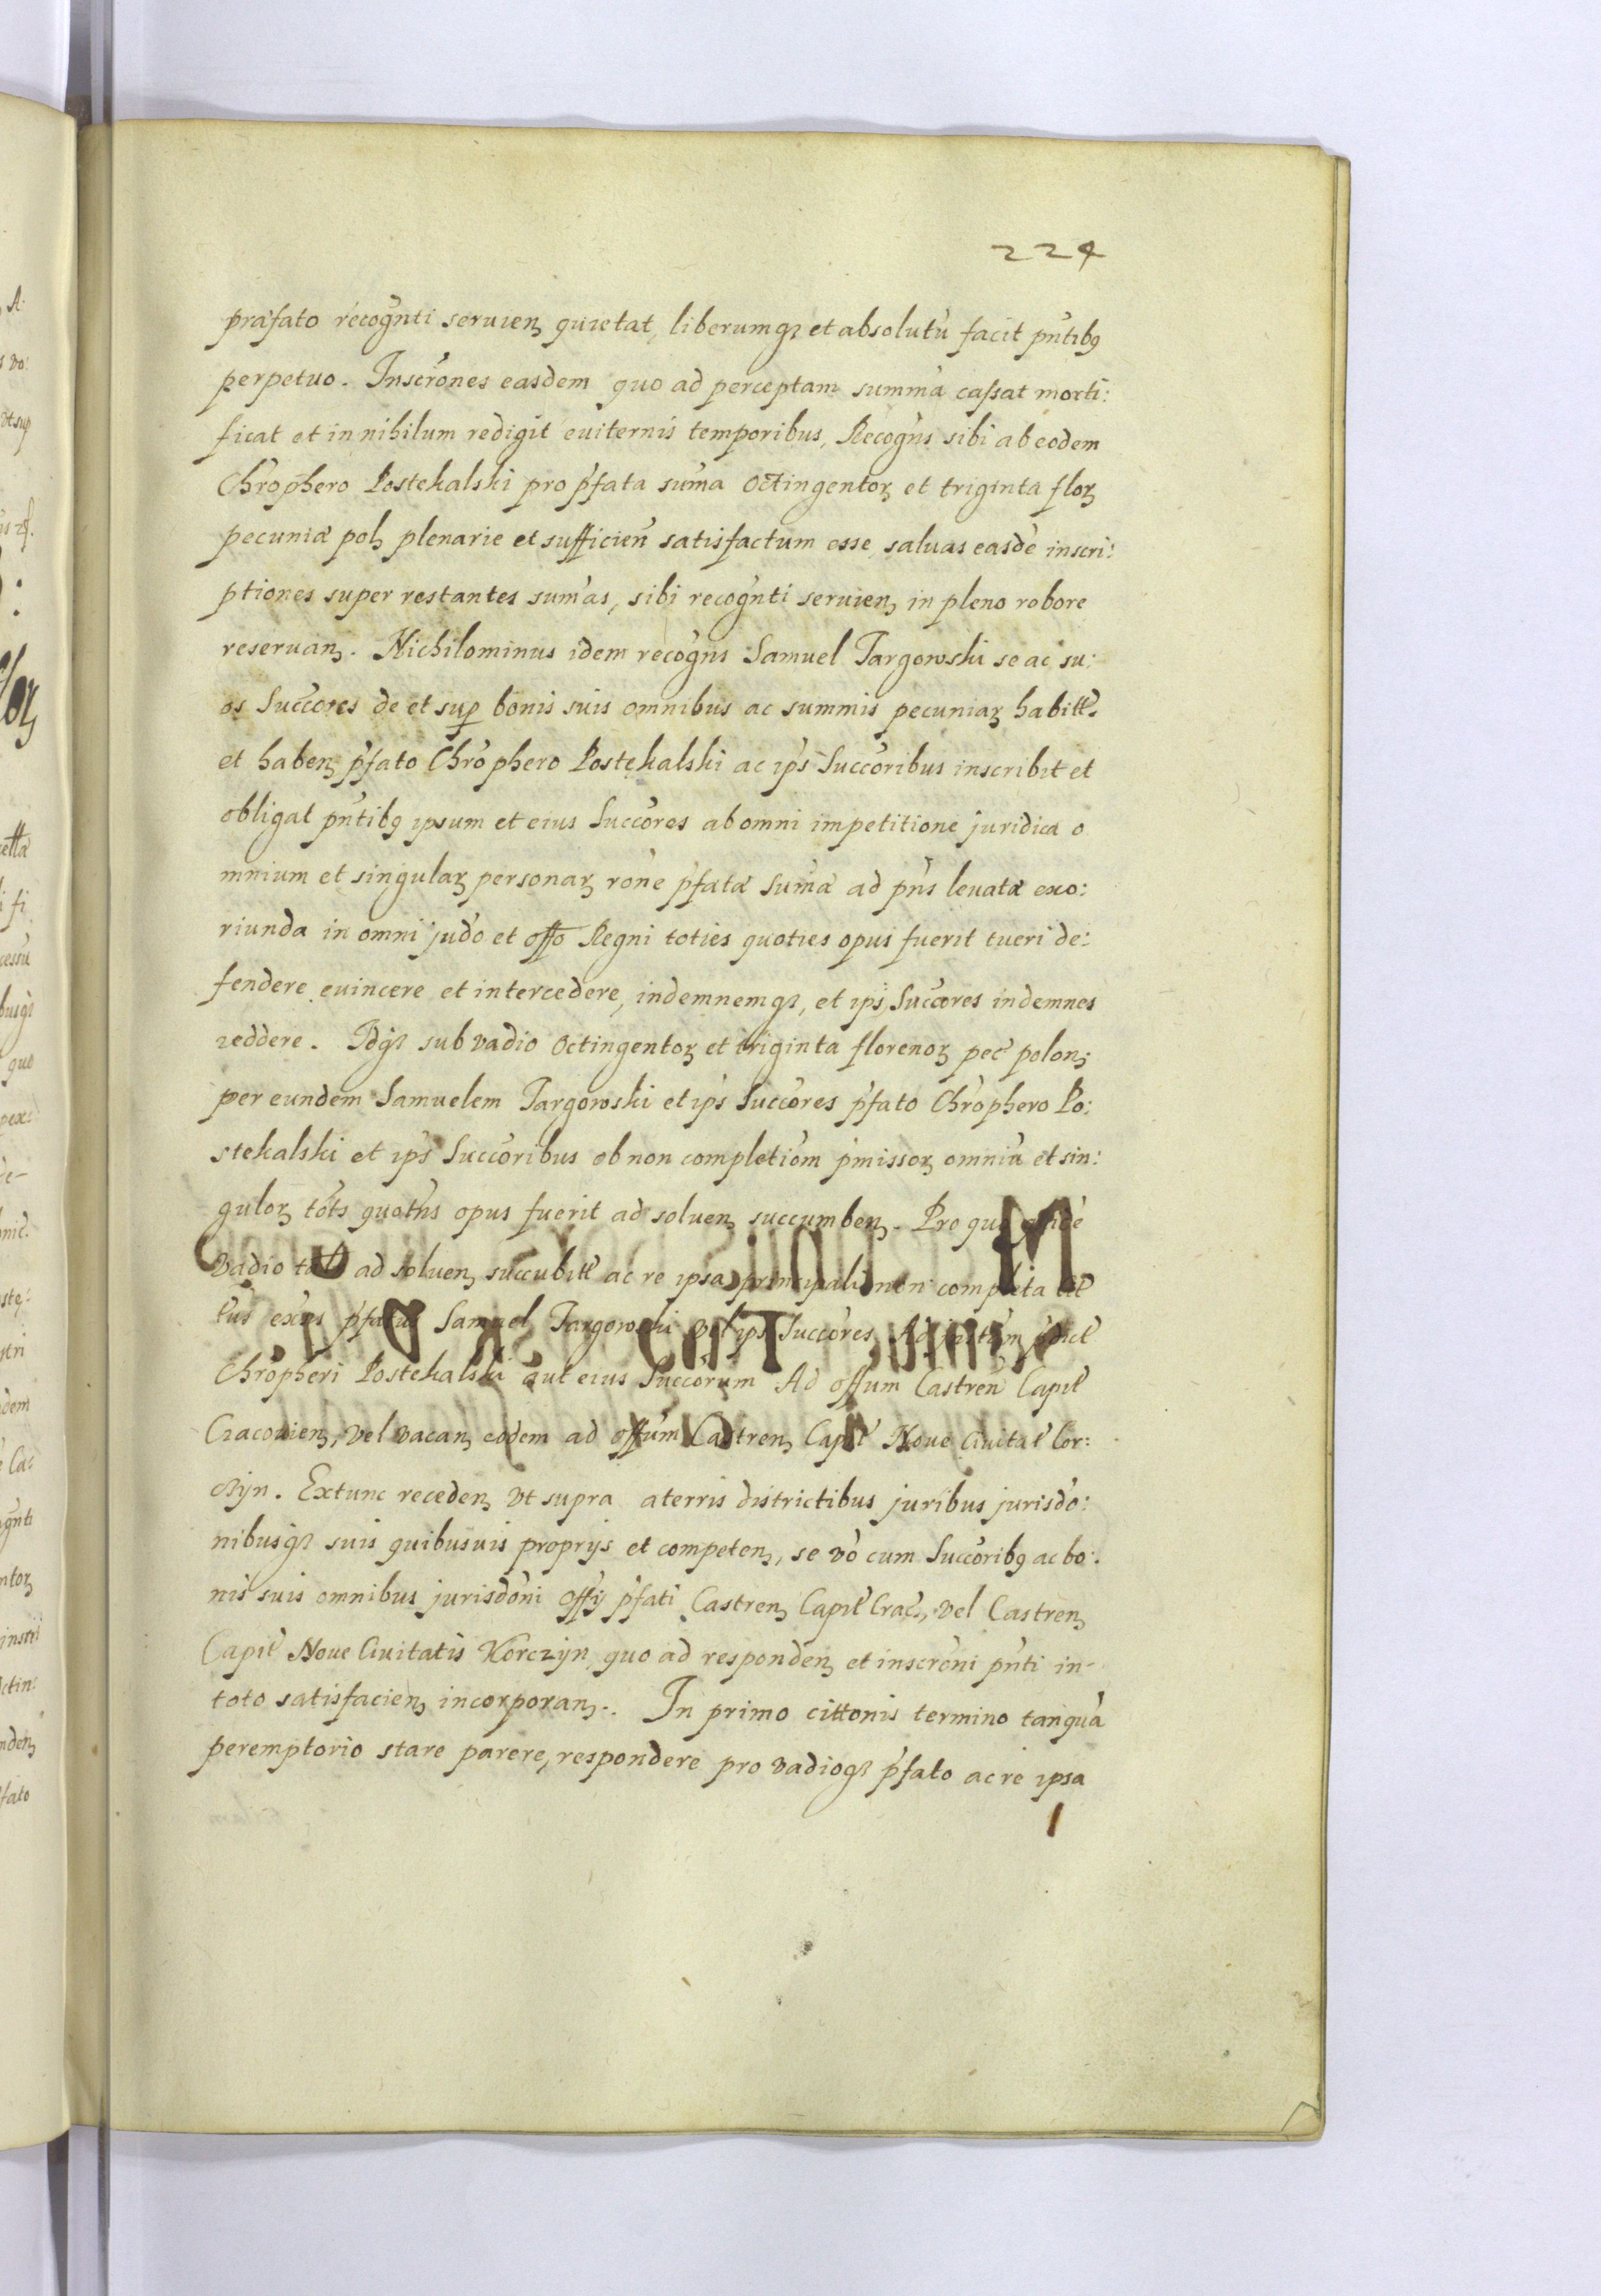 224
præfato recognti seruien quietat, liberumq et absolutũ facit pñtibq
perpetuo. Inscrones easdem quo ad perceptam summã cassat morti:
ficat et in nihilum redigit euiternis temporibus, Recogns sibi ab eodem
Chrophero Postekalski pro pfata sũma Octingentorʒ et triginta florʒ
pecuniæ polʒ plenarie et sufficien satisfactum esse, saluas easdẽ inscri:
ptiones super restantes sumas, sibi recognti seruien in pleno robore
reseruanʒ. Nichilominus idem recogns Samuel Targowski se ac su:
os Succores de et sup bonis suis omnibus ac summis pecuniarʒ habitt
et habenʒ pfato Chrophero Postekalski ac ips Succoribus inscribit et
obligat pñtibq ipsum et eius Succores ab omni impetitione juridica o
mnium et singularʒ personarʒ rone pfatæ Sumæ ad pns leuatæ exo:
riunda in omni judo et offo Regni toties quoties opus fuerit tueri de:
fendere euincere et intercedere, indemnemq, et ips Succores indemnes
reddere. Idq sub vadio Octingentorʒ et triginta florenorʒ pec polonʒ
per eundem Samuelem Targowski et ips Succores pfato Chrophero Po:
stekalski et ips Succoribus ob non completiom pmissorʒ omniũ et sin:
gulorʒ tots quoties opus fuerit ad soluenʒ succumbenʒ. Pro quo
vadio ad soluenʒ succubitt ac re ipsa principali non completa cit
tus pfatus Samuel Targowski vel ips Succores Ad
Chropheri Postekalski aut eius Succorum Ad offum Castren Capit
Cracouienʒ, vel vacanʒ eodem ad offum Castrenʒ Capit Noue Ciuitat Cor:
czyn. Extunc recedenʒ vt supra a terris districtibus juribus jurisdo:
nibusq suis quibusuis proprijs et competenʒ, se vo cum Succoribq ac bo:
nis suis omnibus jurisdoni offij pfati Castrenʒ Capit Crac, vel Castrenʒ
Capit Noue Ciuitatis Korczyn quo ad respondenʒ et inscroni pnti in-
toto satisfacienʒ incorporanʒ. In primo cittonis termino tanquã
peremptorio stare parere, respondere pro vadioq pfato ac re ipsa